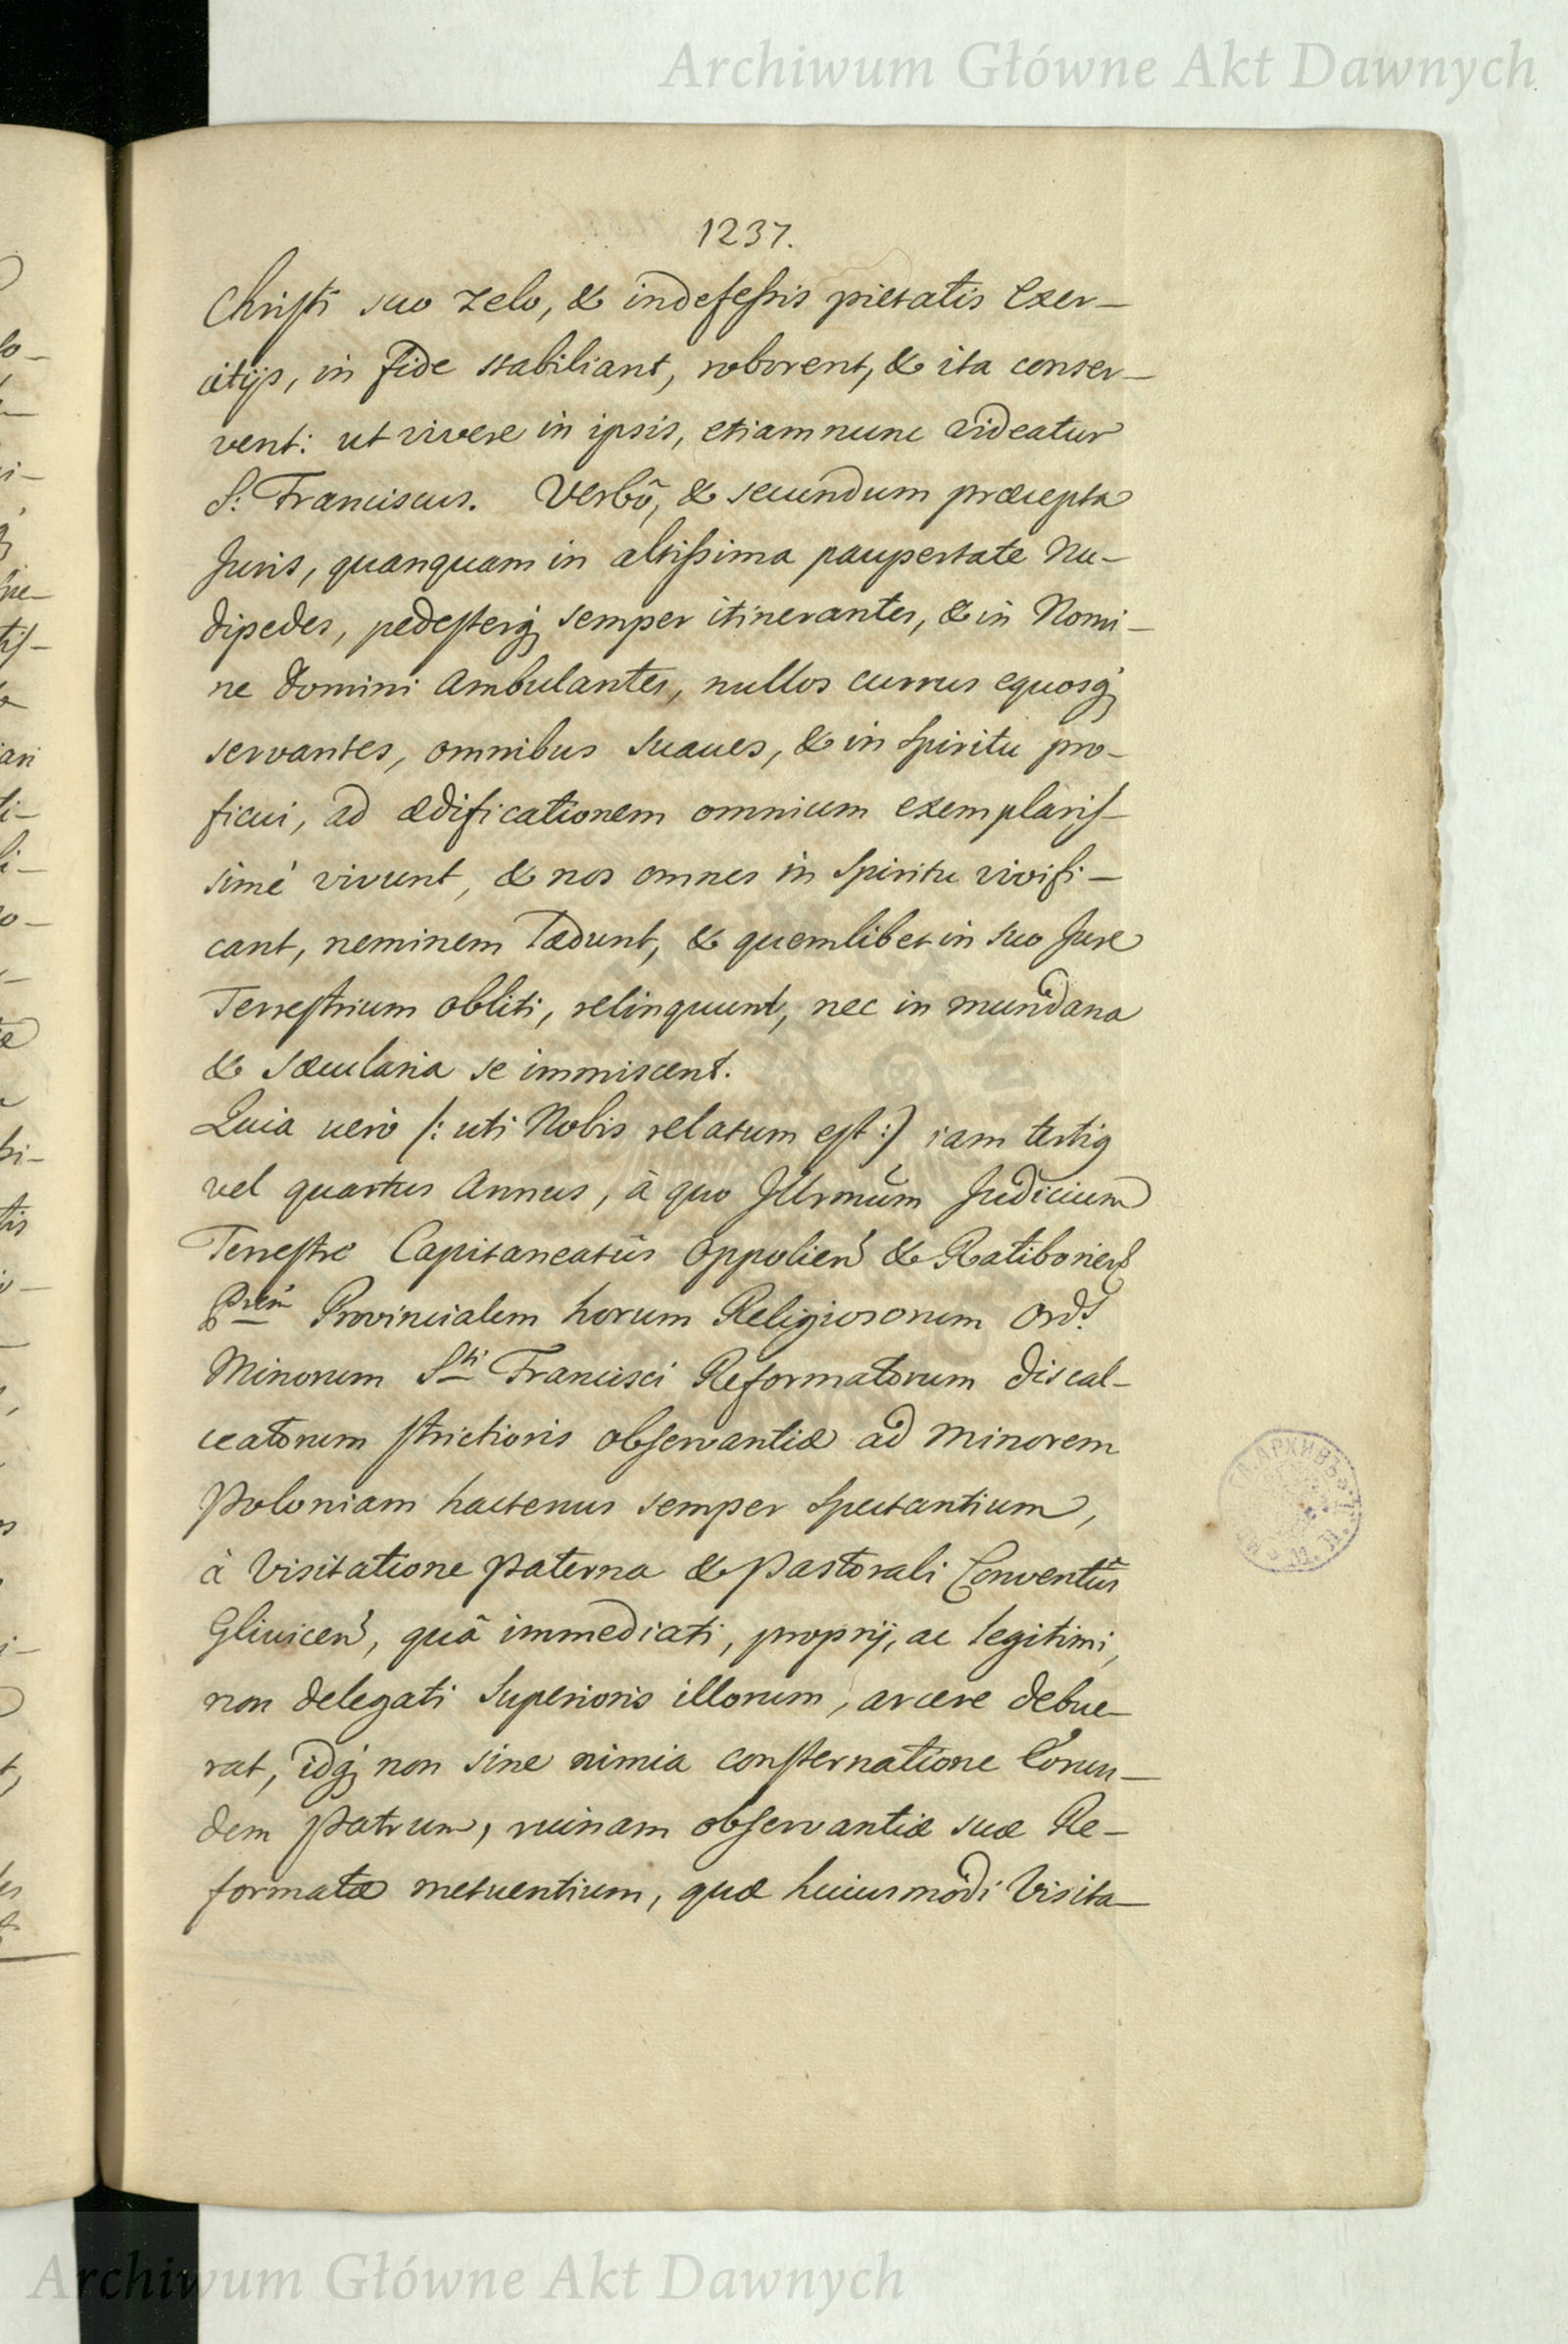 Archiwum Główne Akt Dawnych
1237.
Christi suo zelo, & indefessis pietatis Exer-
citijs, in fide stabiliant, roborent, & ita conser-
vent: ut vivere in ipsis, etiamnunc videatur
S: Franciscus. Verbô, & secundum præcepta
Juris, quanquam in altissima paupertate Nu-
dipedes, pedesterq; semper itinerantes, & in Nomi-
ne Domini Ambulantes, nullos currus equosq;
servantes, omnibus suaues, & in Spiritu pro-
ficui, ad ædificationem omnium exemplaris-
simé vivunt, & nos omnes in Spiritu vivifi-
cant, neminem lædunt, & quemlibet in suo Jure
Terrestrium obliti, relinquunt, nec in mundana
& sæcularia se immiscent.
Quia verò /: uti Nobis relatum est :/ iam tertig
vel quartus Annus, à quo Jllrmũm Judicium
Terrestre Capitaneatûs Oppolien & Ratiborien
Prem Provincialem horum Religiosorum Ord:
Minorum Sti Francisci Reformatorum discal-
ceatorum strictioris observantiæ ad Minorem
Poloniam hactenus semper Spectantium,
à Visitatione paterna & Pastorali Conventûs
Glivicen, quâ immediati, proprij, ac legitimi,
non delegati Superioris illorum, arcere debue-
rat, idq; non sine nimia consternatione Eorun-
dem Patrum, ruinam observantiæ suæ Re-
formatæ metuentium, quæ huiusmodi Visita-
Archiwum Główne Akt Dawnych